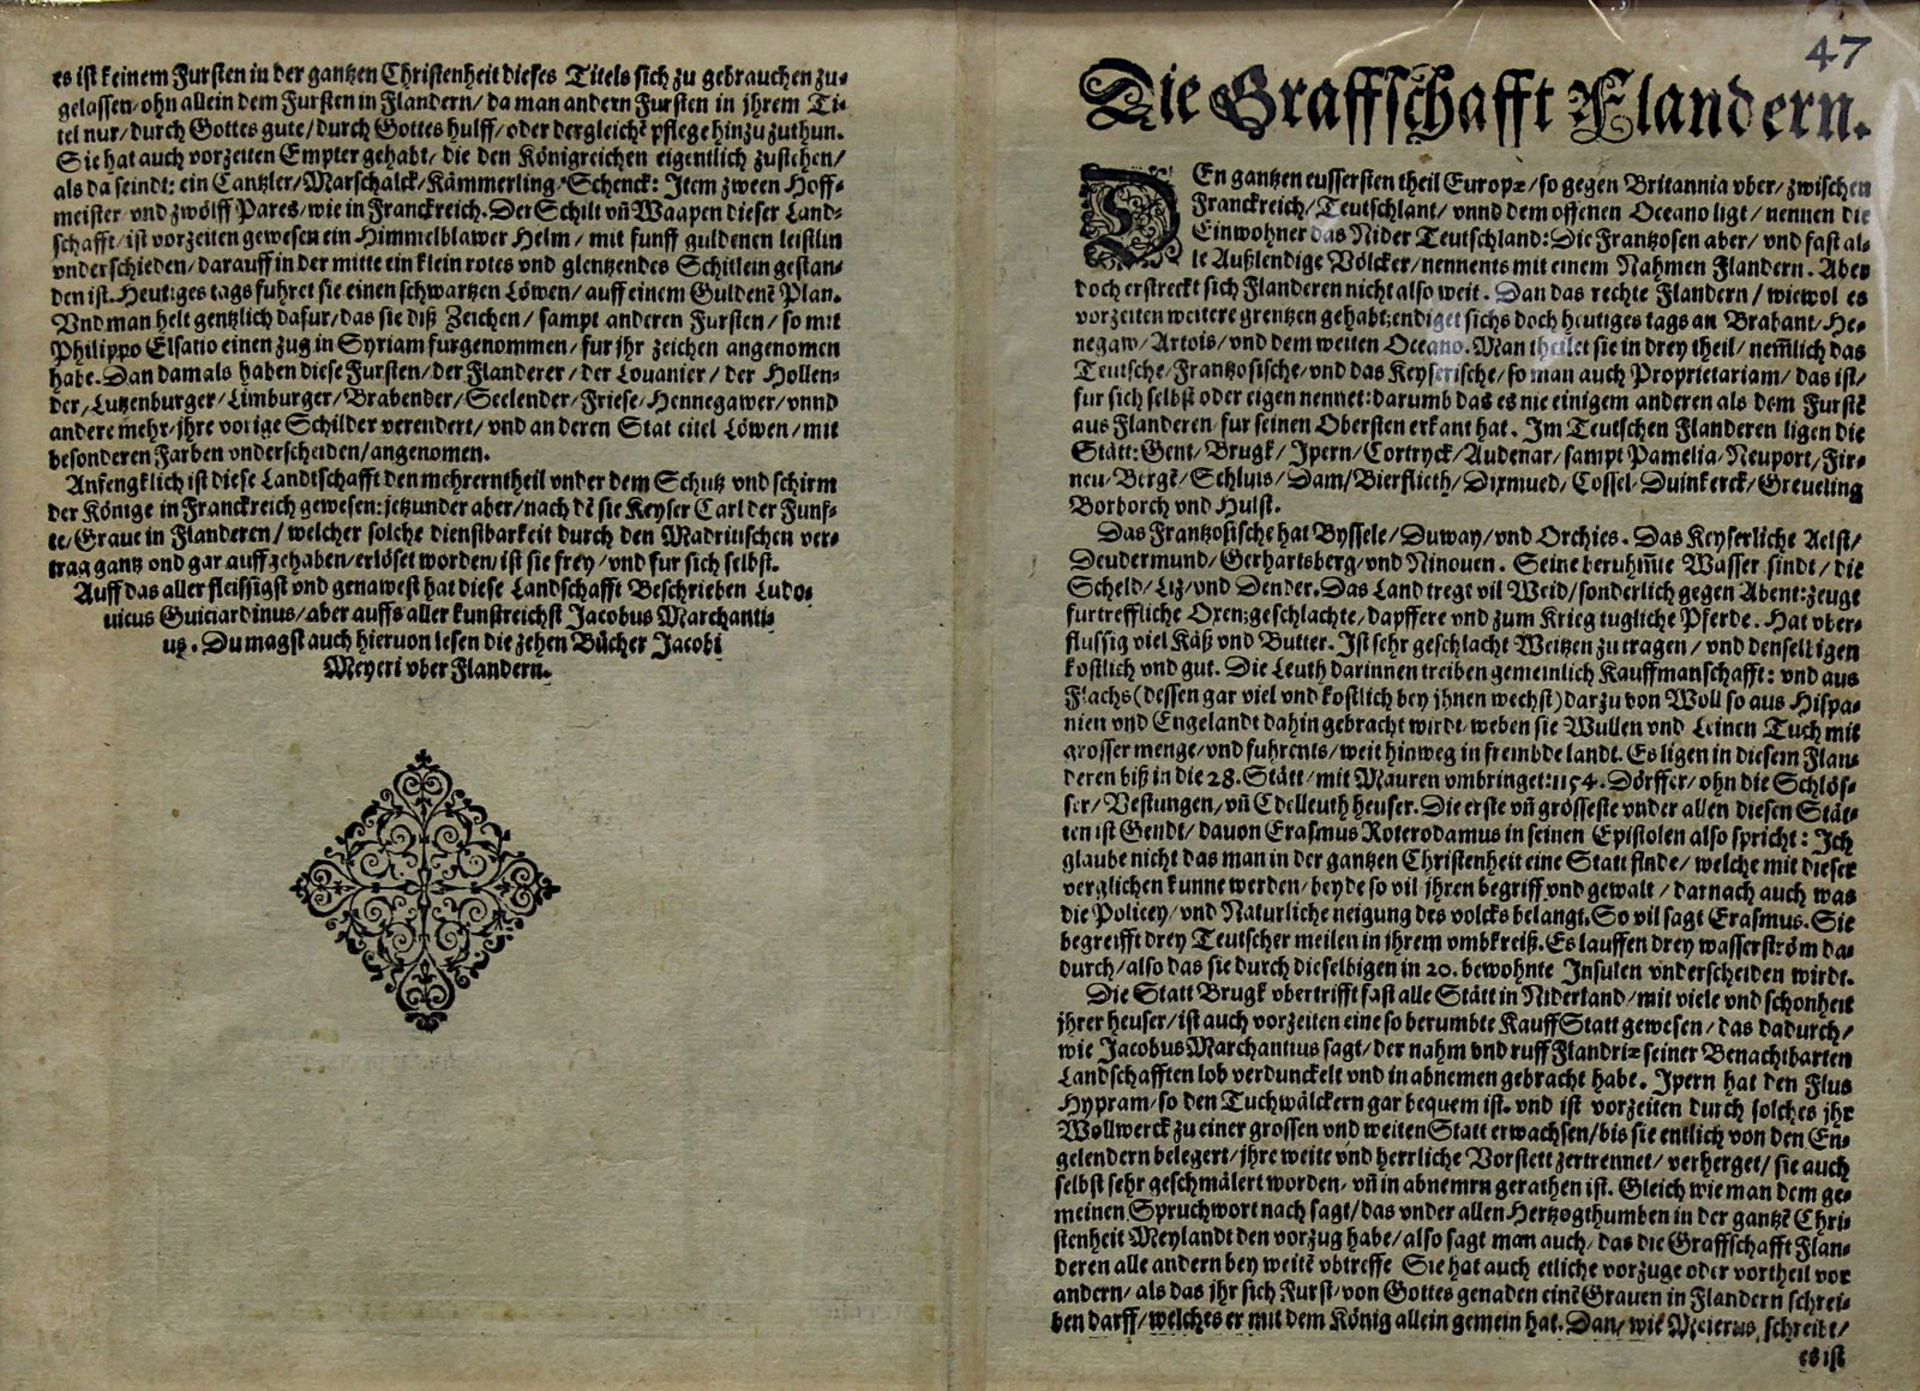 47
Die Graffschafft Flandern.
DEn gantzen eussersten theil Europæ/so gegen Britannia vber/zwischen
Franckreich/Teutschlant/vnnd dem offenen Oceano ligt/nennen die
Einwohner das Nider Teutschland:Die Frantzosen aber/vnd fast al-
le Außlendige Völcker/nennents mit einem Nahmen Flandern. Aber
doch erstreckt sich Flanderen nicht also weit. Dan das rechte Flandern/wiewol es
vorzeiten weitere grentzen gehabt:endiget sichs doch heutiges tags an Brabant/He-
negaw/Artois/vnd dem weiten Oceano. Man theilet sie in drey theil/nem̃lich das
Teutsche/Frantzosische/vnd das Keyserische/so man auch Proprietariam/das ist/
fur sich selbst oder eigen nennet:darumb das es nie einigem anderen als dem Furstẽ
aus Flanderen fur seinen Obersten erkant hat. Im Teutschen Flanderen ligen die
Stätt:Gent/Brugk/Ipern/Cortryck/Audenar/sampt Pamelia/Neuport/Fir-
neu/Bergẽ/Schluis/Dam/Bierflieth/Dixmued/Cossel/Duinkerck/Greueling
Borborch vnd Hulst.
Das Frantzosische hat Byssele/Duway/vnd Orchies. Das Keyserliche Aelst/
Deudermund/Gerhartsberg/vnd Ninouen. Seine beruhm̃te Wasser sindt/die
Scheld/Liz/vnd Dender. Das Land tregt vil Weid/sonderlich gegen Abent:zeugt
furtreffliche Oxen:geschlachte/dapffere vnd zum Krieg tugliche Pferde. Hat vber-
flussig viel Käß vnd Butter. Ist sehr geschlacht Weitzen zu tragen/vnd denselbigen
kostlich vnd gut. Die Leuth darinnen treiben gemeinlich Kauffmanschafft: vnd aus
Flachs (dessen gar viel vnd kostlich bey jhnen wechst) darzu von Woll so aus Hispa-
nien vnd Engelandt dahin gebracht wirdt/weben sie Wullen vnd Leinen Tuch mit
grosser menge/vnd fuhrents/weit hinweg in frembde landt. Es ligen in diesem Flan-
deren biß in die 28. Stätt/mit Mauren vmbringet:1154. Dörffer/ohn die Schlös-
ser/Vestungen/vñ Edelleuth heuser. Die erste vñ grösseste vnder allen diesen Stät-
ten ist Gendt/dauon Erasmus Roterodamus in seinen Epistolen also spricht: Ich
glaube nicht das man in der gantzen Christenheit eine Statt finde/welche mit dieser
verglichen kunne werden/beyde so vil jhren begriff vnd gewalt/darnach auch was
die Policey/vnd Naturliche neigung des volcks belangt. So vil sagt Erasmus. Sie
begreifft drey Teutscher meilen in jhrem vmbkreiß. Es lauffen drey wasserström da-
durch/also das sie durch dieselbigen in 20. bewohnte Insulen vnderscheiden wirdt.
Die Statt Brugk vbertrifft fast alle Stätt in Niderland/mit viele vnd schonheit
jhrer heuser/ist auch vorzeiten eine so berumbte KauffStatt gewesen/das dadurch/
wie Jacobus Marchantius sagt/der nahm vnd ruff Flandriæ seiner Benachtbarten
Landschafften lob verdunckelt vnd in abnemen gebracht habe. Ipern hat den Flus
Hypram/so den Tuchwälckern gar bequem ist. vnd ist vorzeiten durch solches jhr
Wollwerck zu einer grossen vnd weiten Statt erwachsen/bis sie entlich von den En-
gelendern belegert/jhre weite vnd herrliche Vorstett zertrennet/verherget/sie auch
selbst sehr geschmälert worden/vñ in abnemen gerathen ist. Gleich wie man dem ge-
meinen Spruchwort nach sagt/das vnder allen Hertzogthumben in der gantzẽ Chri-
stenheit Meylandt den vorzug habe/also sagt man auch/das die Graffschafft Flan-
deren alle andern bey weitẽ vbtreffe Sie hat auch etliche vorzuge oder vortheil vor
andern/als das jhr sich Furst/von Gottes genaden einẽ Grauen in Flandern schrei-
ben darff/welches er mit dem König allein gemein hat. Dan/wie Meierus schreibt/
es ist
es ist keinem Fursten in der gantzen Christenheit dieses Titels sich zu gebrauchen zu-
gelassen/ohn allein dem Fursten in Flandern/da man andern Fursten in jhrem Ti-
tel nur/durch Gottes gute/durch Gottes hulff/oder dergleichẽ pflege hinzu zuthun.
Sie hat auch vorzeiten Empter gehabt/die den Königreichen eigentlich zustehen/
als da seindt: ein Cantzler/Marschalck/Kämmerling/Schenck: Item zween Hoff-
meister vnd zwölff Pares/wie in Franckreich. Der Schilt vñ Waapen dieser Land-
schafft/ist vorzeiten gewesen ein Himmelblawer Helm/mit funff guldenen leistlin
vnderschieden/darauff in der mitte ein klein rotes vnd glentzendes Schitlein gestan-
den ist. Heutiges tags fuhret sie einen schwartzen Löwen/auff einem Guldenẽ Plan.
Vnd man helt gentzlich dafur/das sie diß Zeichen/sampt anderen Fursten/so mit
Philippo Elsatio einen zug in Syriam furgenommen/fur jhr zeichen angenomen
habe. Dan damals haben diese Fursten/der Flanderer/der Louanier/der Hollen-
der/Lutzenburger/Limburger/Brabender/Seelender/Friese/Hennegawer/vnnd
andere mehr/jhre vorige Schilder verendert/vnd an deren Stat eitel Löwen/mit
besonderen Farben vnderscheiden/angenomen.
Anfengklich ist diese Landtschafft den mehrerntheil vnder dem Schutz vnd schirm
der Könige in Franckreich gewesen: jetzunder aber/nach dẽ sie Keyser Carl der Funf-
te/Graue in Flanderen/welcher solche dienstbarkeit durch den Madritischen ver-
trag gantz vnd gar auffgehaben/erlöset worden/ist sie frey/vnd fur sich selbst.
Auff das aller fleissigst vnd genawest hat diese Landschafft Beschrieben Ludo-
uicus Guiciardinus/aber auffs aller kunstreichst Jacobus Marchanti-
us. Du magst auch hieruon lesen die zehen Bücher Jacobi
Meyeri vber Flandern.